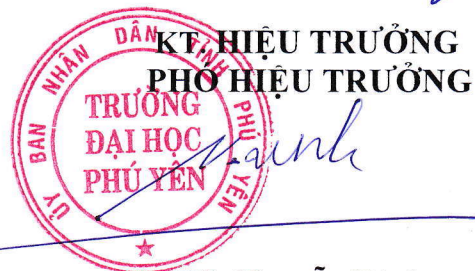 KT. HIỆU TRƯỞNG
PHÓ HIỆU TRƯỞNG
ỦY BAN NHÂN DÂN TỈNH PHÚ YÊN
TRƯỜNG
ĐẠI HỌC
PHÚ YÊN